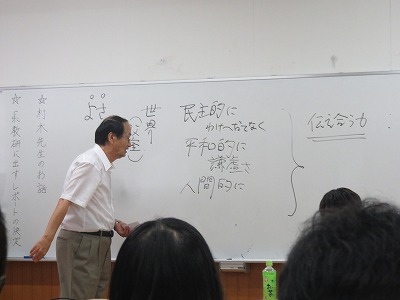 民主的に
わけへだてなく
平和的に
謙虚さ
人間的に
伝え合う力
世界
よさ
☆村木先生のお話
☆京教研に出すレポートの決定